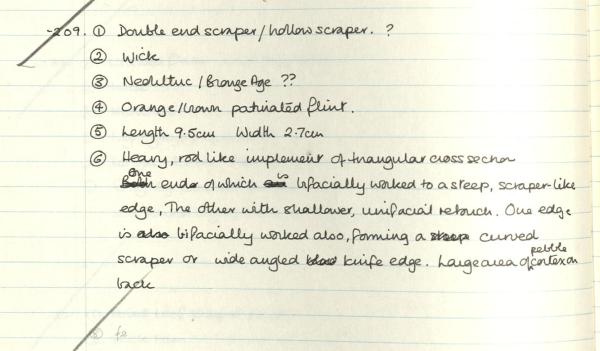 -209. ① Double end scraper/hollow scraper. ?
② Wick
③ Neolithic / Bronze Age ??
④ Orange/brown patinated flint.
⑤ Length 9.5cm Width 2.7cm
⑥ Heavy, rod like implement of triangular cross section
one end of which is bifacially worked to a steep, scraper-like
edge, The other with shallower, unifacial retouch. One edge
is bifacially worked also, forming a curved
scraper or wide angled knife edge. Large area of pebble cortex on
back